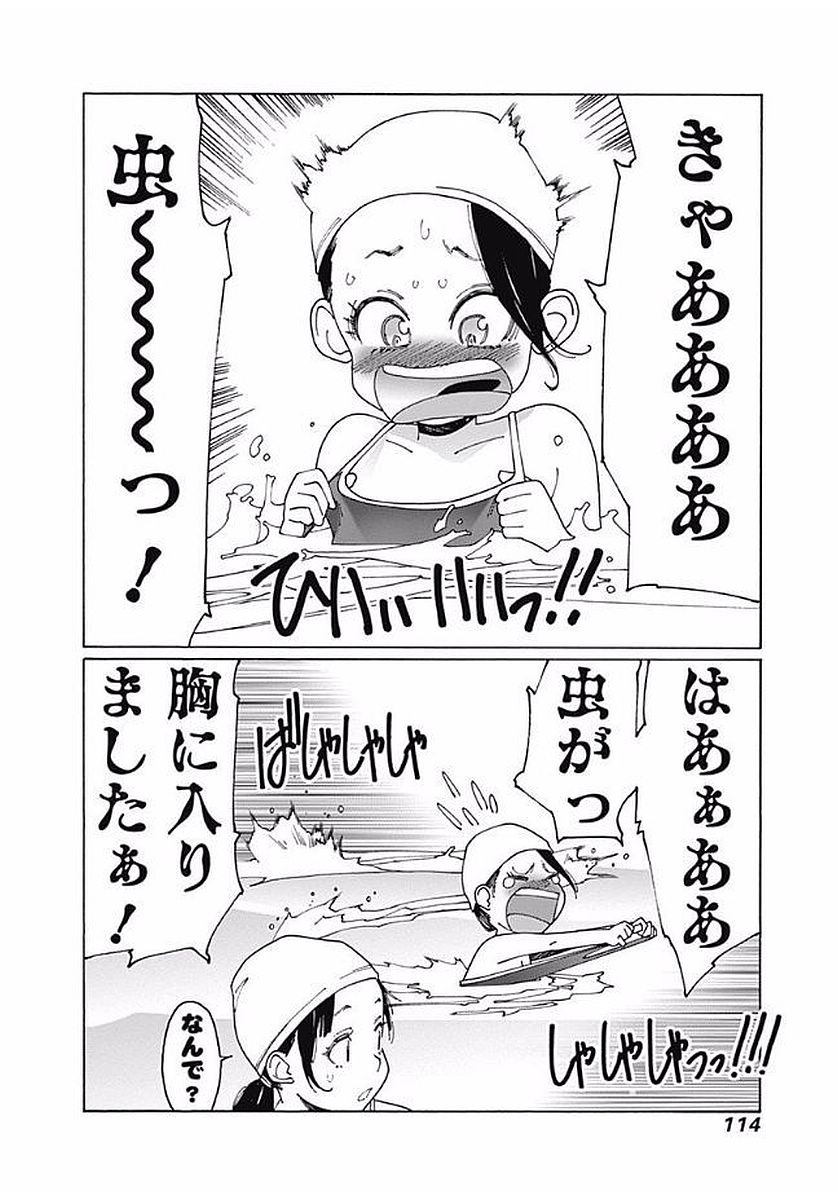 きゃああああ
虫～～～～～っ！
びりぃぃいいいっ！！
はあぁああ
虫がっ
ばしゃしゃしゃ
胸に入り
ましたぁ！
しゃしゃしゃっっ！！！
なんで？
114